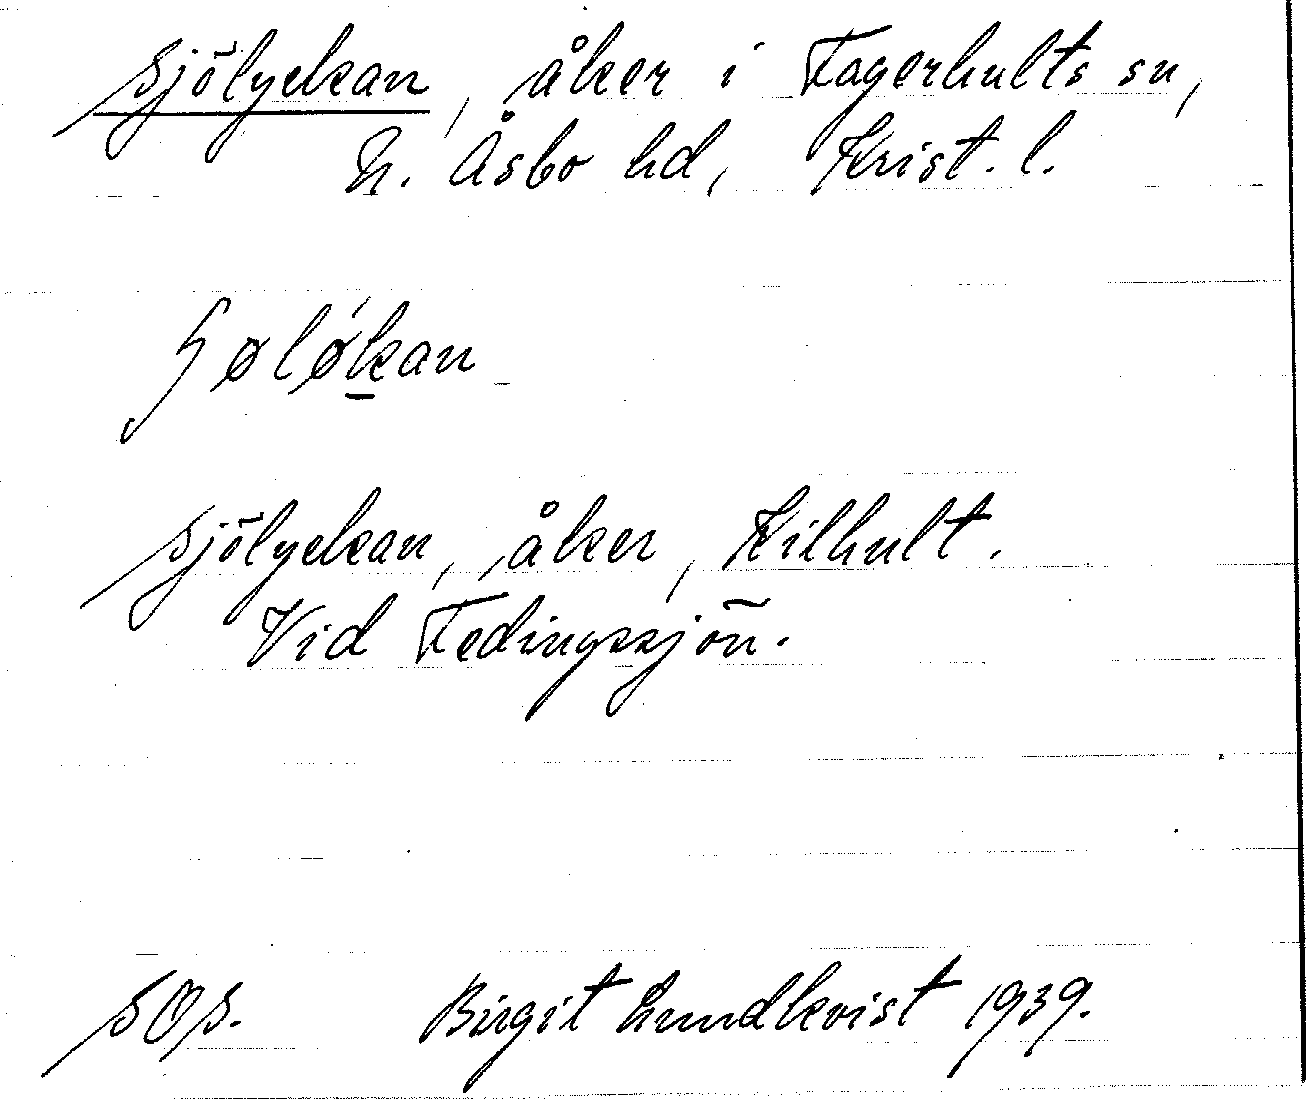 Sjölyckan, åker i Fagerhults sn,
N. Åsbo hd, Krist. l.
ʃøløkan
Sjölyckan, åker, Kilhult.
Vid Fedingssjön.
SOS. Birgit Lundkvist 1939.